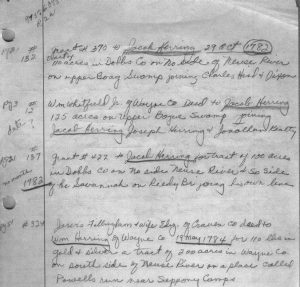 grant # 375 to Jacob Herring 29 Oct 1782
100 acres in Dobbs Co on No Side of Neuse River
on upper Boag Swamp joining Charles Hood & Dixon
Pg 3 # 12 Wm Whitfield Jr. of Wayne Co Deed to Jacob Herring
date ? 125 acres on Upper Bogue Swamp joining
Jacob Herring Joseph Herring & Jonathan
137 Grant # 422 to Jacob Herring for tract of 100 acres
in Dobbs Co on No side Neuse River & So Side
1782 of the Savannah on Reedy Br joing his own line
# 324 Jesters Fillingham & wife Eliz. of Craven Co deed to
Wm Herring of Wayne Co 19 May 1784 for 110 lbs in
gold & silver a tract of 200 acres in Wayne Co
on south side of Neuse River on a place called
Powells run near Seppony Camps